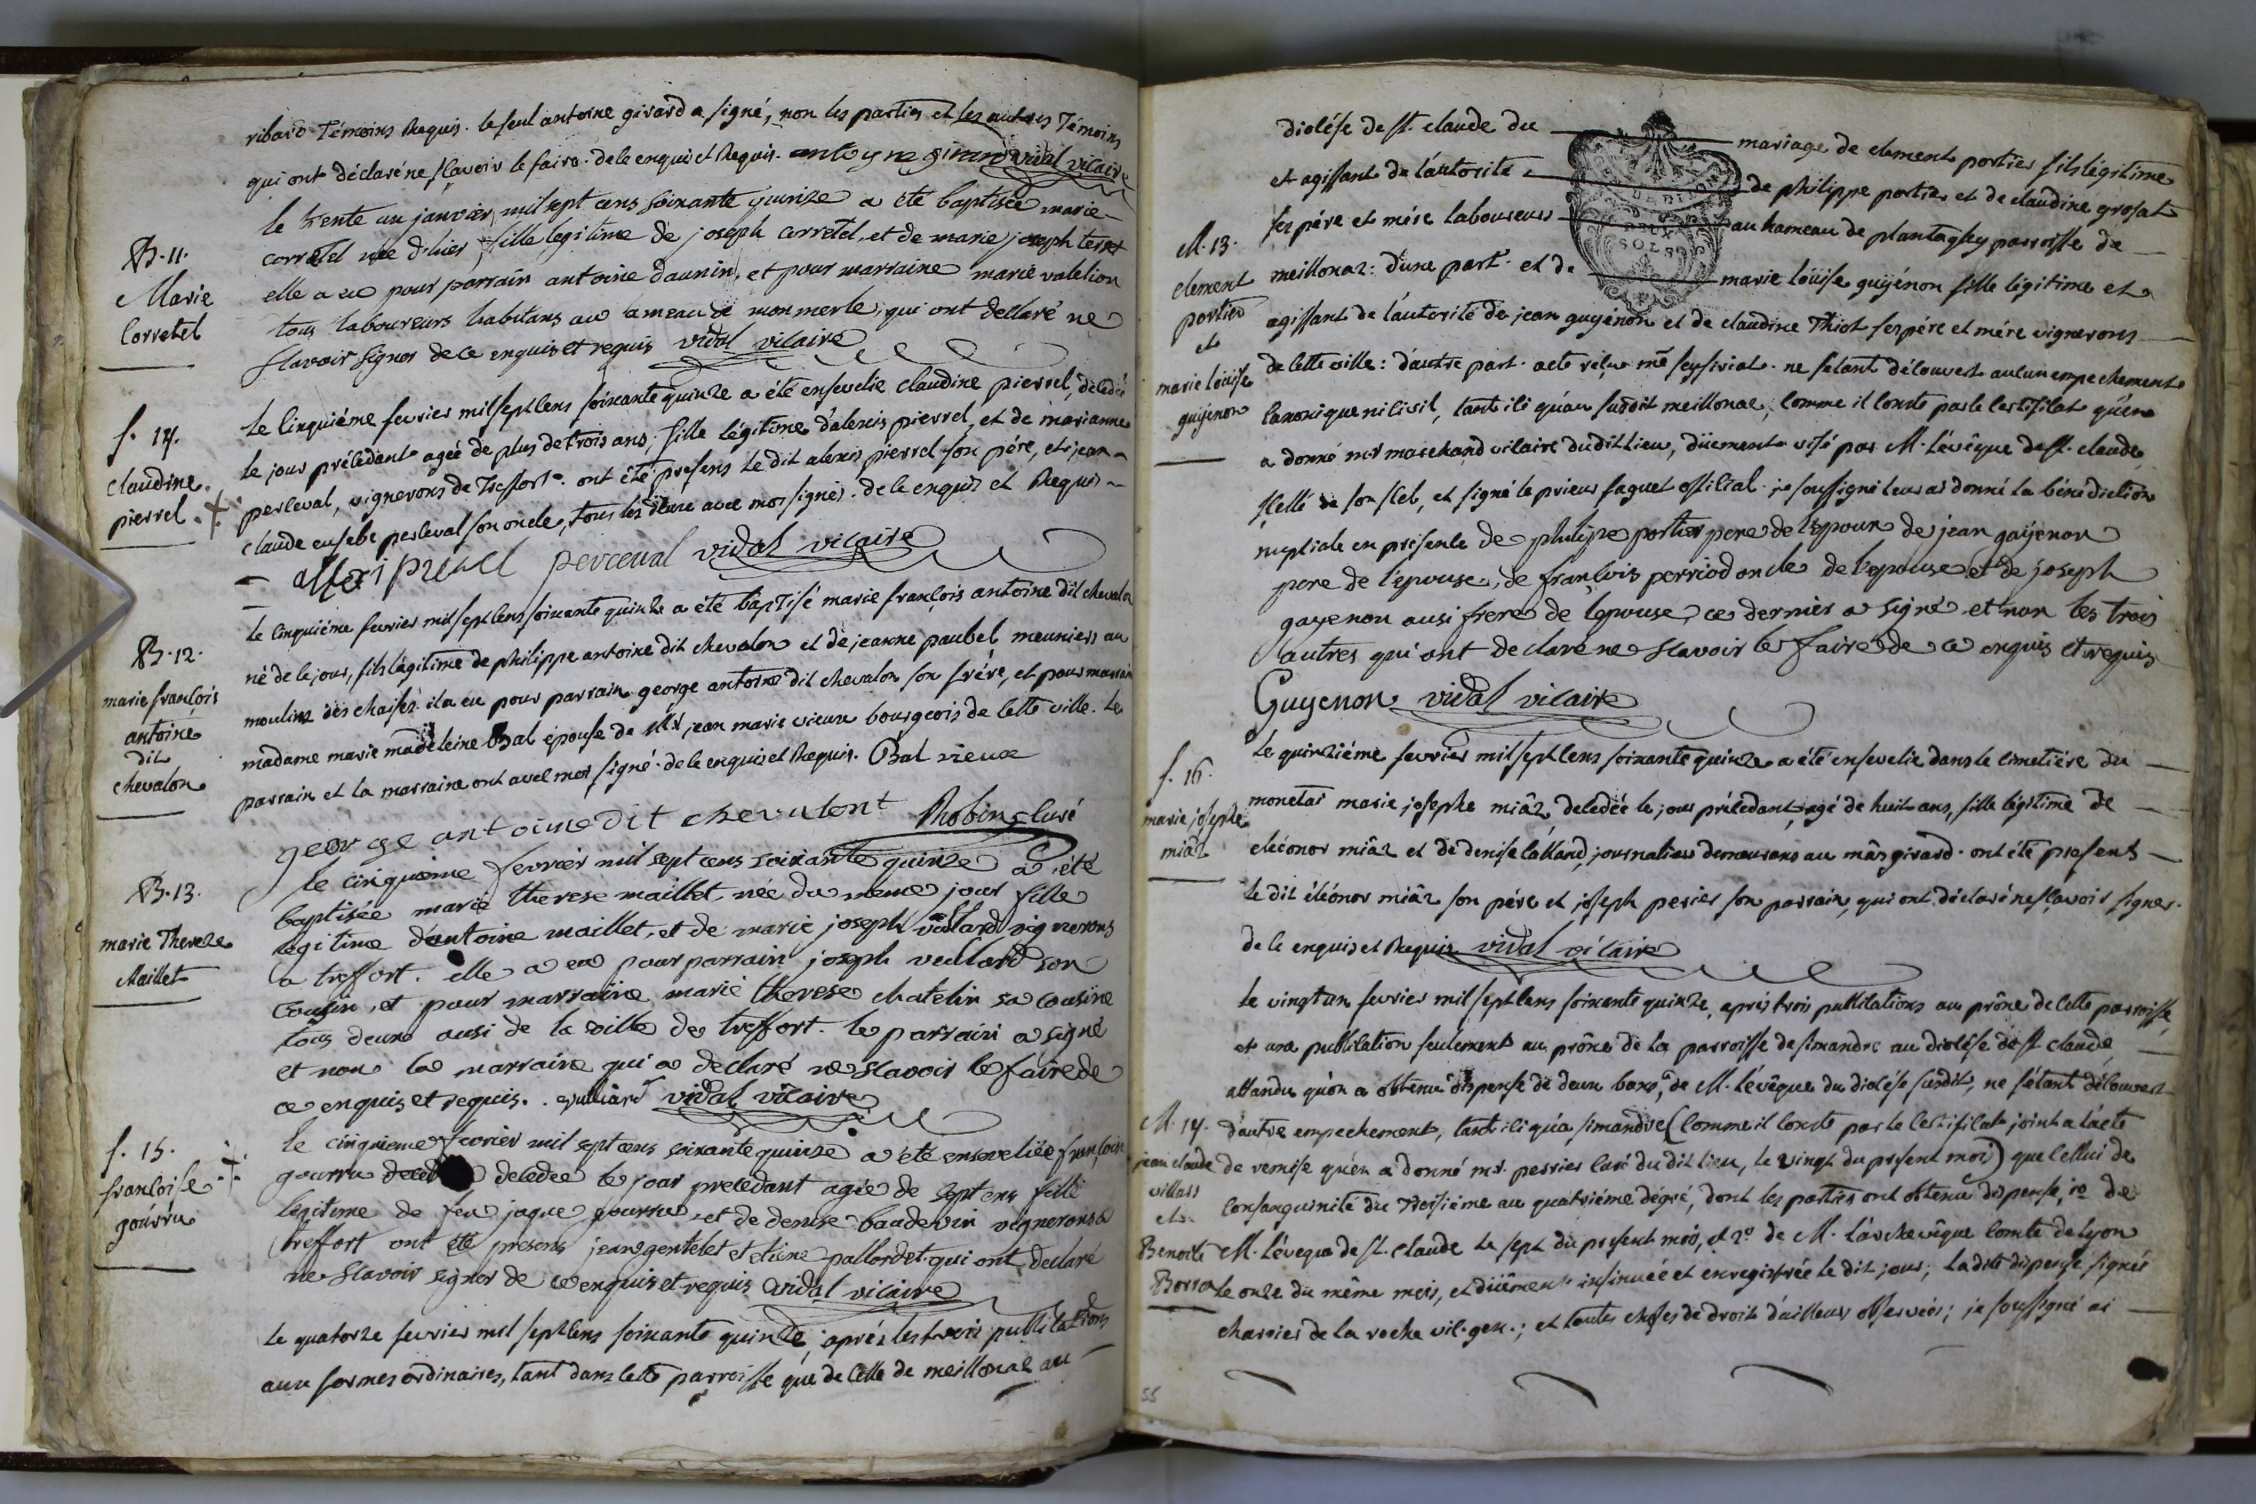 ribard Témoins Requis. le seul antoine girard a signé, non les parties et les autres Témoins
qui ont déclaré ne sçavoir le faire. de ce enquis et Requis. antoyne girard vidal vicaire
B. 11.
Marie
Corretel
le trente un janvier mil sept cens soixante quinze a été baptisée marie
corretel née d'hier, fille legitime de joseph corretel, et de marie joseph terret
elle a eu pour parrain antoine daunin, et pour marraine marie valetion
tous laboureurs habitans au ameau de monmerle, qui ont declaré ne
sçavoir signer de ce enquis et requis vidal vicaire
f. 14.
claudine
pierrel.
le cinquiéme fevrier mil sept cens soixante quinze a été ensevelie claudine pierrel, décédée
le jour précédent agée de plus de trois ans, fille légitime d'alexis pierrel, et de marianne
perceval, vignerons de Treffort. ont été présens le dit alexis pierrel son pére, et jean
claude eusebe perceval son oncle, tous les deux avec moi signés. de ce enquis et Requis
alexi pierrel perceval vidal vicaire
B. 12.
marie françois
antoine
dit
chevalon
le cinquiéme fevrier mil sept cens soixante quinze a été baptisé marie françois antoine dit chevalon
né de ce jour, fils légitime de philippe antoine dit chevalon et de jeanne paubel meuniers au
moulin des chaises. il a eu pour parrain george antoine dit chevalon son frére, et pour marraine
madame marie madeleine Bal épouse de Mr jean marie vieux bourgeois de cette ville. le
parrain et la marraine ont avec moi signé. de ce enquis et Requis. Bal vieux
george antoine dit chevalont Robin curé
B. 13.
marie Therese
Maillet
le cinquième fevrier mil sept cens soixante quinze a été
baptisée marie therese maillet, née du meme jour fille
legitime d'antoine maillet, et de marie joseph vuillard vignerons
a treffort. elle a eu pour parrain joseph veillard son
cousin, et pour marraine marie therese chatelin sa cousine
tous deux ausi de la ville de treffort. le parrain a signé
et non la marraine qui a declaré ne sçavoir le faire de
ce enquis et requis. vulliard vidal vicaire
f. 15.
françoise
gourru
le cinquieme fevrier mil sept cens soixante quinze a été enseveliée françoise
gourru decedée le jour precedant agée de sept ens fille
legitime de feu jaque gourru, et de denise baudevin vignerons a
treffort ont été presens jean gentelet et etiene pallordet qui ont declaré
ne sçavoir signer de ce enquis et requis vidal vicaire
le quatorze fevrier mil sept cens soixante quinze, aprés les trois publications
aux formes ordinaires, tant dans cette parroisse que de celle de meillonaz au
diocése de st. claude du mariage de clement portier fils légitime
et agissant de l'autorité de philippe portier et de claudine grosat
M. 13.
clement
portier
et
marie loüise
guyenon
ses pére et mére laboureurs au hameau de plantaglay parroisse de
meillonaz: d'une part. et de marie loüise guyénon fille légitime et
agissant de l'autorité de jean guyénon et de claudine Thiot ses pére et mére vignerons
de cette ville: d'autre part. acte reçu me seyssriat. ne s'etant découvert aucun empechement
canonique ni civil, tant ici qu'au susdit meillonaz, comme il conste par le certificat qu'en
a donné mr marchand vicaire du dit lieu, düement visé par M. l'évêque de st. claude,
scellé de son scel, et signé le prieur faguet official. je soussigné leur ai donné la bénédiction
nuptiale en présence de philippe portier pere de l'epoux de jean gaÿenon
pere de l'epouse, de françois perriod oncle de l'epouse et de joseph
gayenon ausi frere de l'epouse, ce dernier a signé et non les trois
autres qui ont declaré ne sçavoir le faire de ce enquis et requis
Guyenon vidal vicaire
f. 16.
marie josephe
miâz
le quinziéme fevrier mil sept cens soixante quinze a été ensevelie dans le cimetiére du
monetai marie josephe miâz, decedée le jour précedant, agé de huit ans, fille légitime de
eléonor miâz et de denise calland, journaliers demeurans au mâs girard. ont été presens
le dit éléonor miâz son pére et joseph perier son parrain, qui ont déclaré ne sçavoir signer.
de ce enquis et Requis vidal vicaire
le vingt un fevrier mil sept cens soixante quinze, aprés trois publications au prône de cette parroisse,
et une publication seulement au prône de la parroisse de simandre au diocése de st claude,
attandu qu'on a obtenu dispense de deux bans, de M. l'évêque du diocése susdit, ne s'étant découvert
M. 14.
jean claude
villars
et
Benoite
Borron
d'autre empechement, tant ici qu'à simandre (comme il conste par le certificat joint a l'acte
de remise qu'en a donné mr. perrier curé du dit lieu, le vingt du present mois) que cellui de
consanguinité du troisiéme au quatriéme dégré, dont les parties ont obtenu dispense, 1o de
M. l'évêque de st. claude le sept du present mois, et 2o de M. l'archevêque comte de lyon
le onze du même mois, et düement insinuée et enregistrée le dit jour, la dite dispense signée
charrier de la roche vic. gen.; et toutes choses de droit d'ailleurs observées; je soussigné ai
55